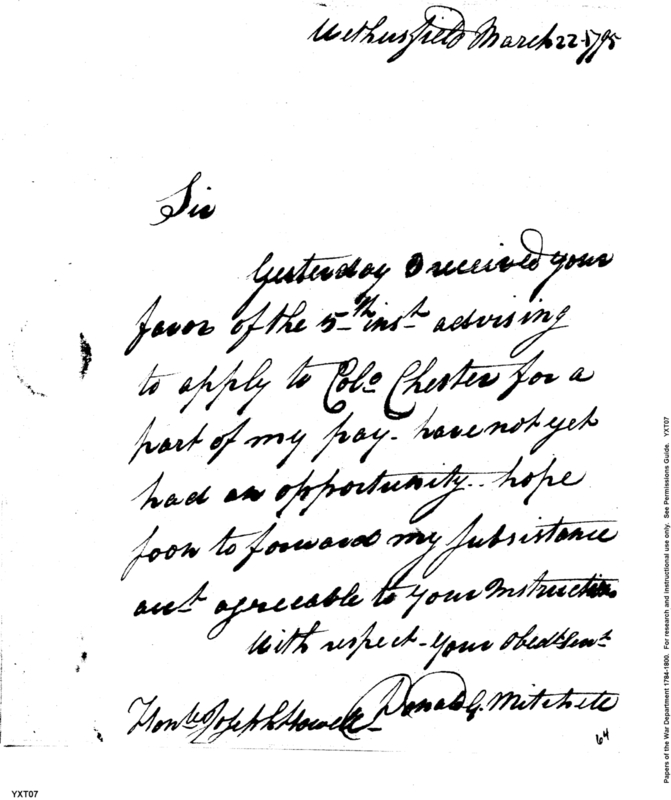 Wethersfield March 22. 1795
Sir
Yesterday I received your
favor of the 5th inst advising
to apply to Colo Chester for a
part of my pay - have not yet
had an opportunity.. hope
soon to forward my Subsistance
acct agreeable to your Instructions
With respect - your obedt Servt
Honble Joseph Howell Donald G. Mitchell
64
YXT07
Papers of the War Department 1784-1800. For research and instructional use only. See Permissions Guide. YXT07